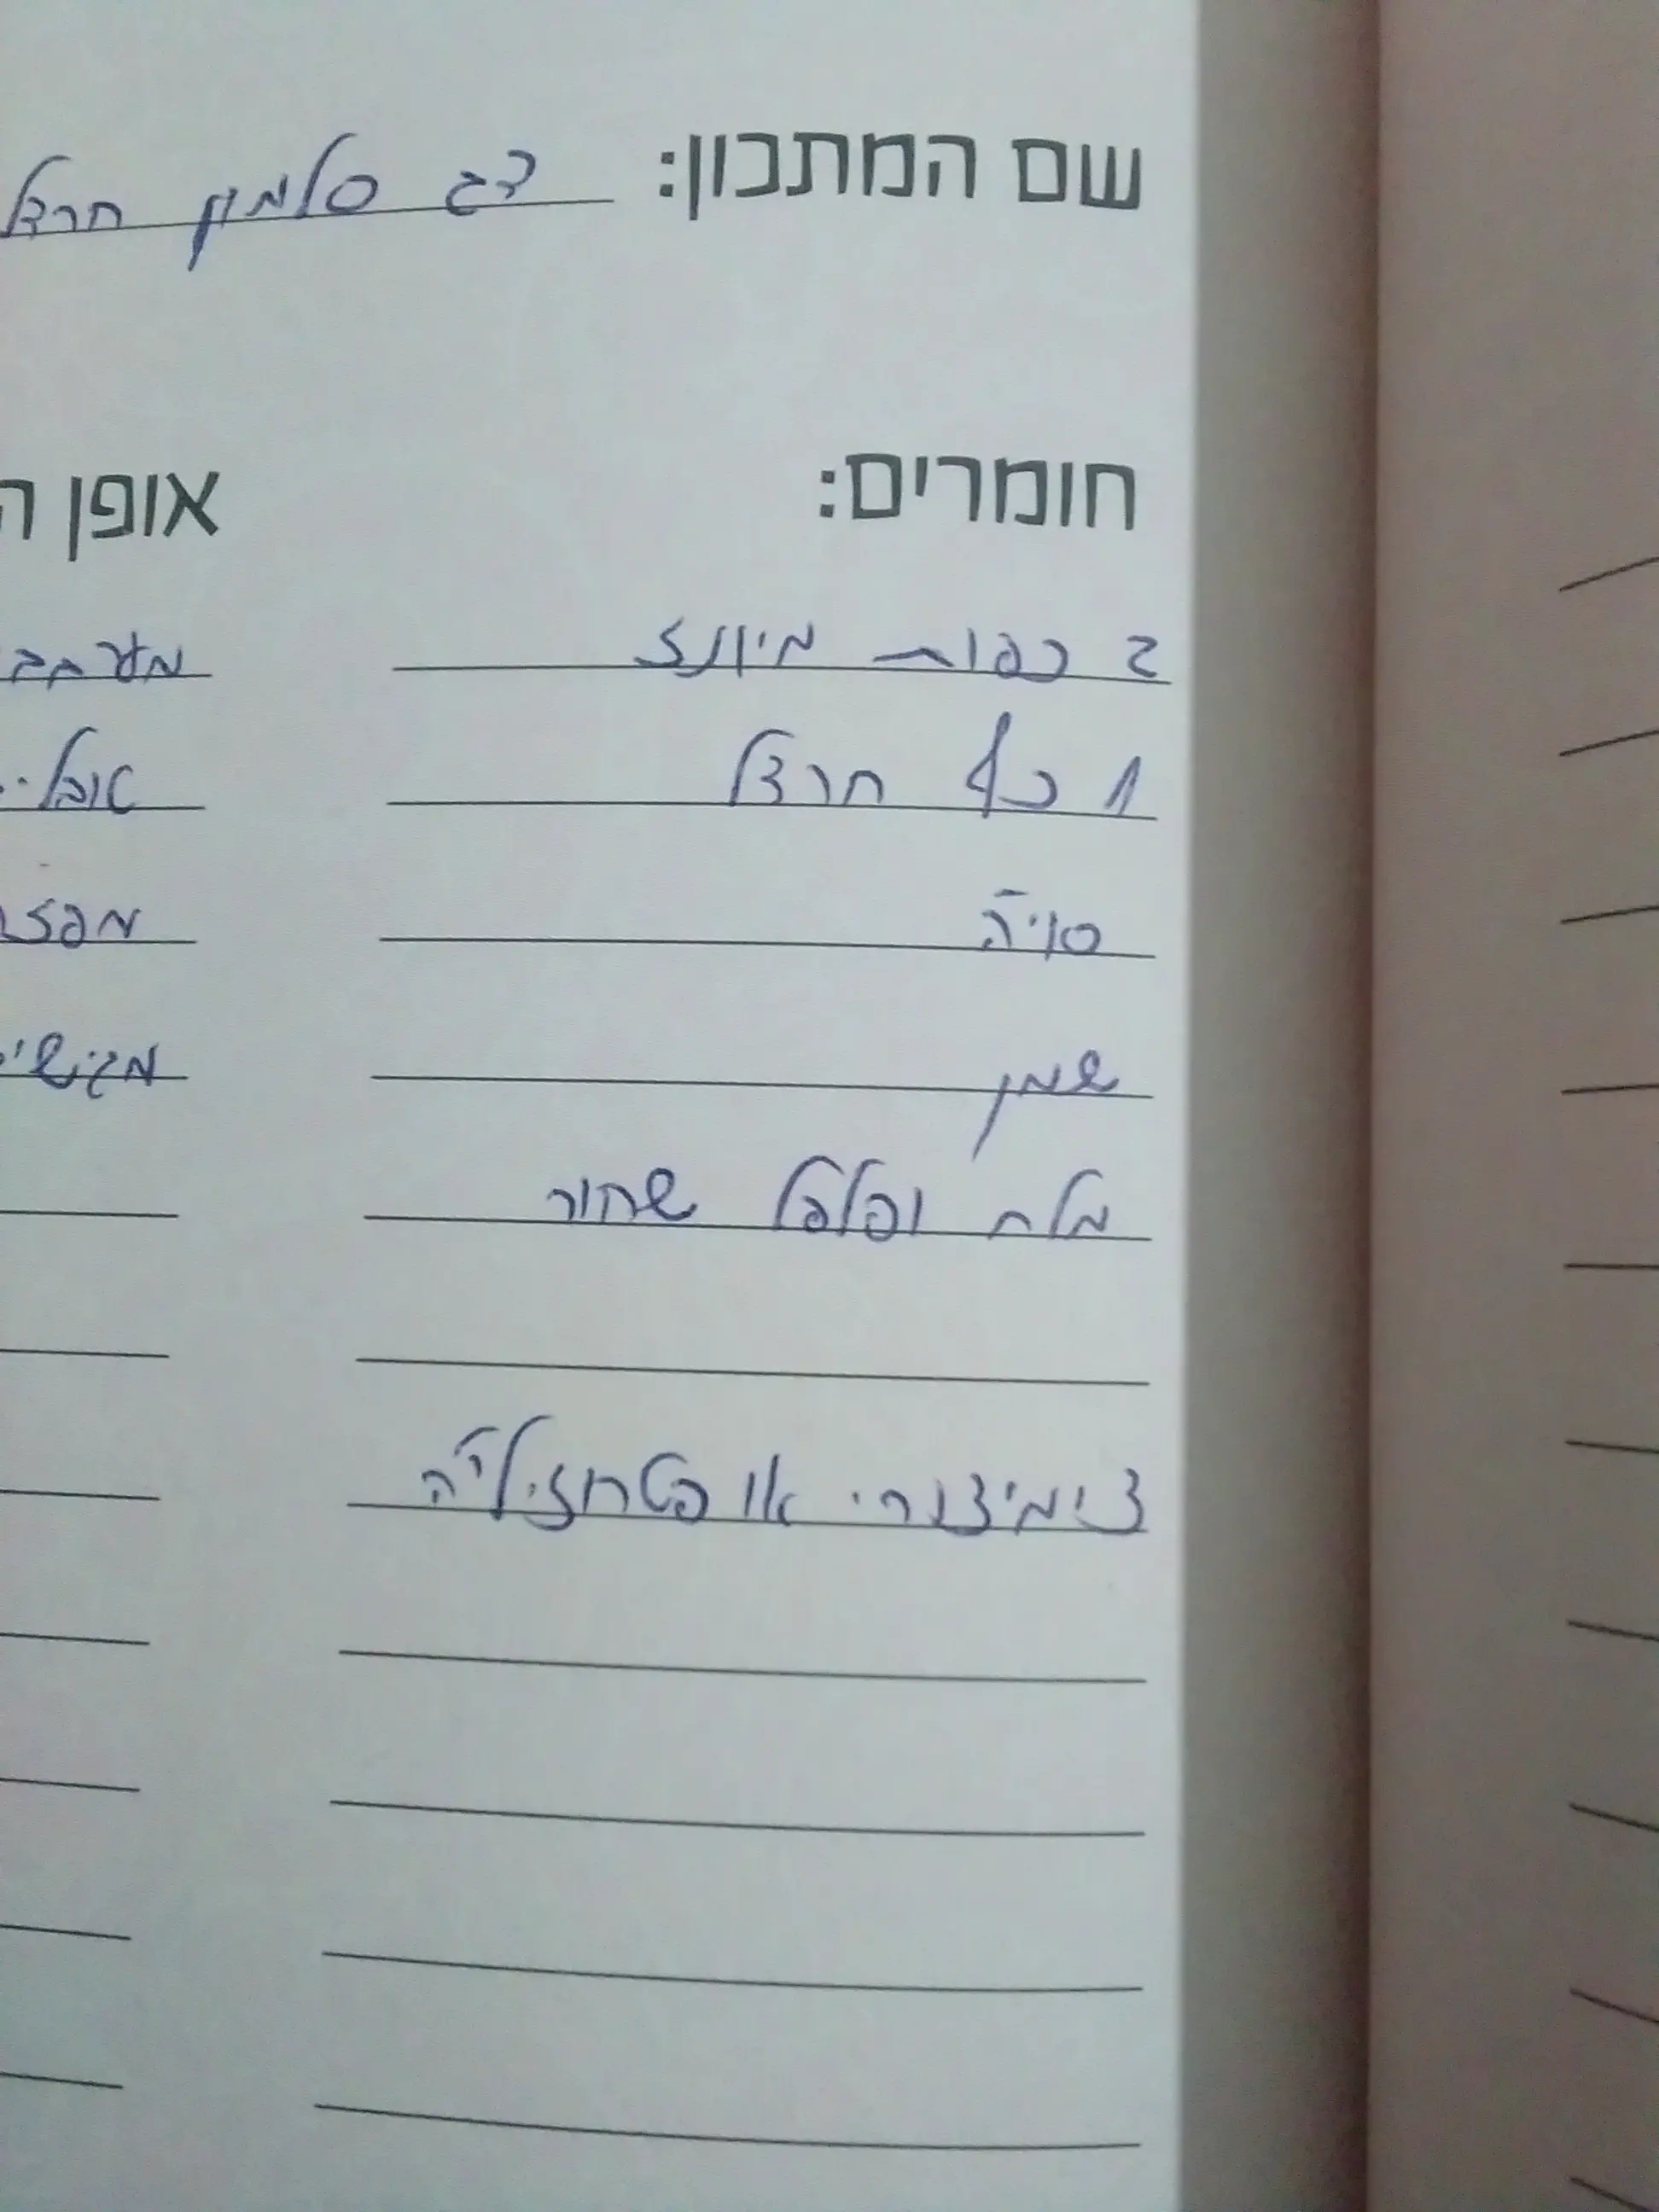 שם המתכון: דג סלמון חרדל
חומרים:
2 כפות מיונז
1 כף חרדל
סויה
שמן
מלח ופלפל שחור
צ'ימיצ'ורי או פטרוזיליה
אופן ה
מערבב
מפזר
מגישי